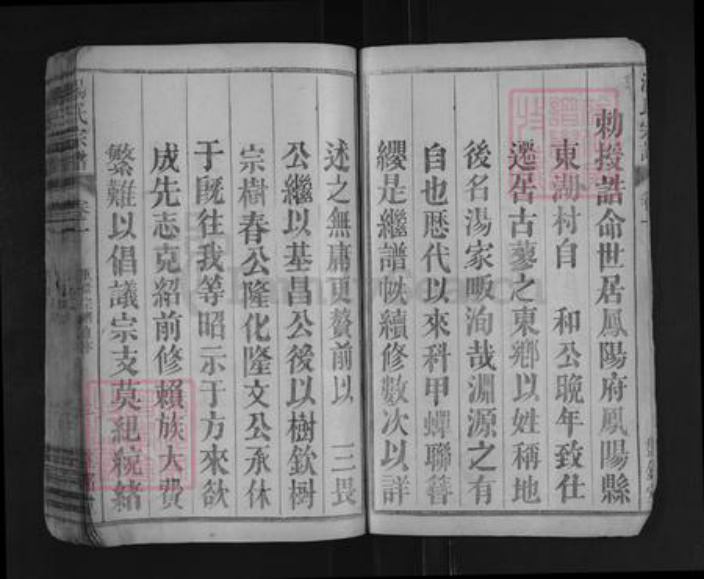 勅授誥命世居鳳陽府鳳陽縣
東湖村自 和公晚年致仕
遷居古蓼之東鄉以姓稱地
後名湯家畈洵哉淵源之有
自也歷代以來科甲蟬聯簪
纓是繼譜帙續修數次以詳
述之無庸更贅前以 三畏
公繼以基昌公後以樹欽樹
宗樹春公隆化隆文公承休
于既往我等昭示于方來欲
成先志克紹前修賴族大費
繁難以倡議宗支莫紀統緒
湯氏宗譜 卷一